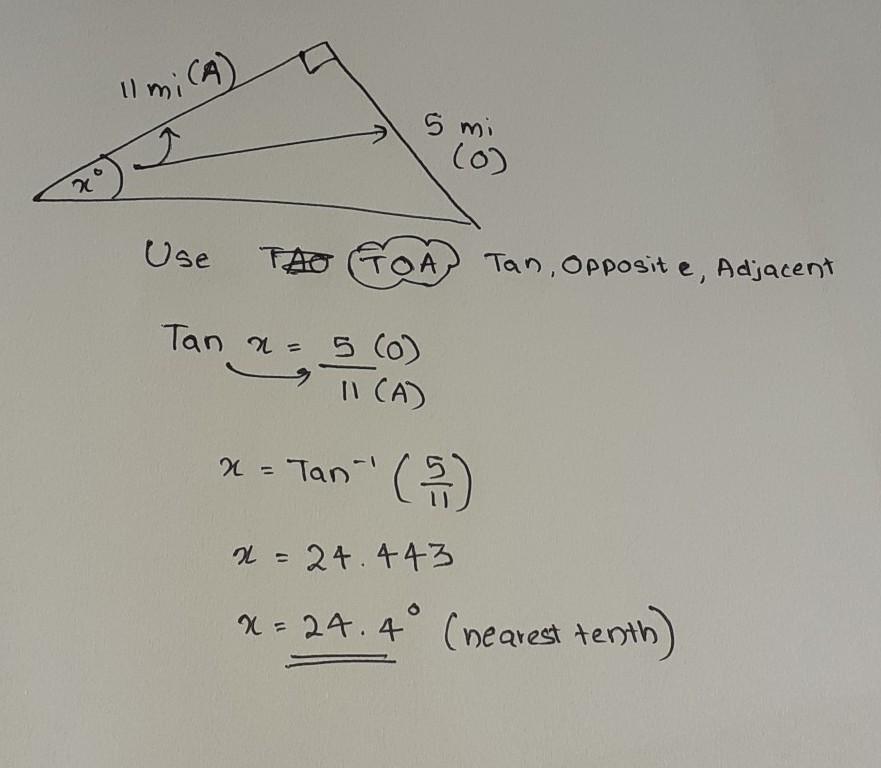 11 mi (A)
5 mi
(O)
x°
Use TAO (TOA) Tan, Opposite, Adjacent
Tan x = 5 (O)
11 (A)
x = Tan⁻¹ (5/11)
x = 24.443
x = 24.4° (nearest tenth)